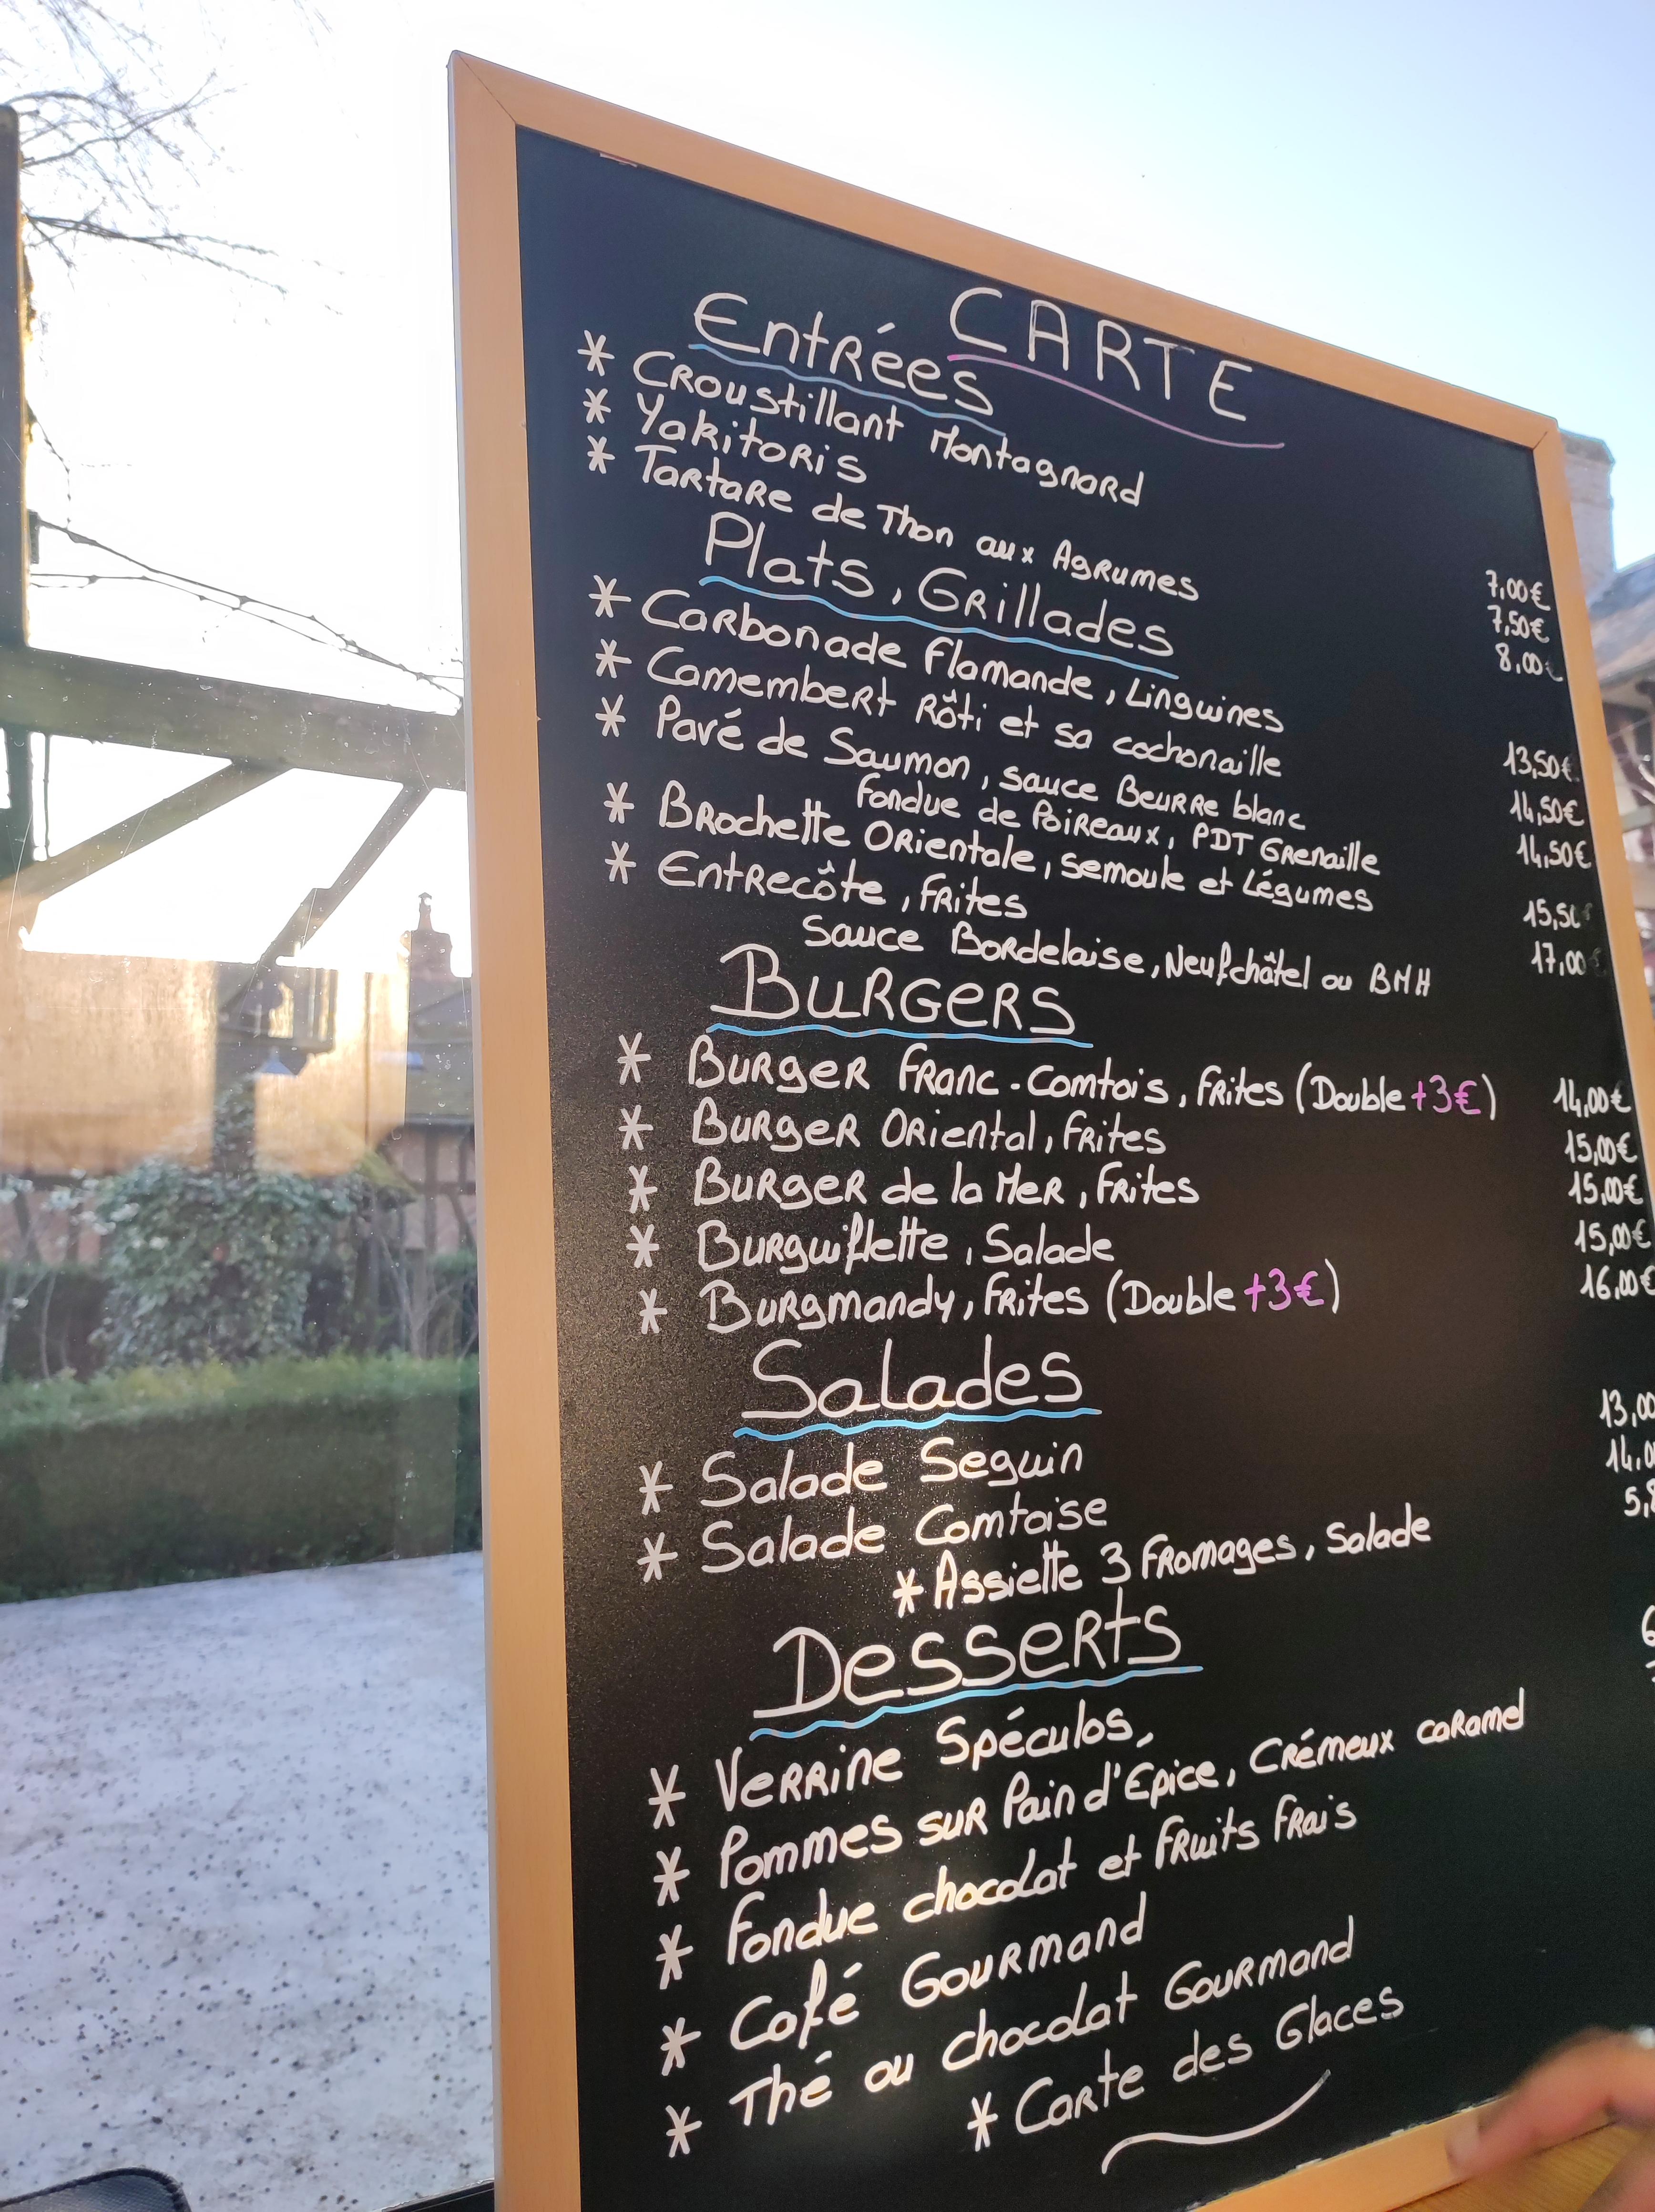 CARTE
Entrées
* Croustillant Montagnard 7,00€
* Yakitoris 7,50€
* Tartare de Thon aux Agrumes 8,00€
Plats, Grillades
* Carbonade Flamande, Linguines 13,50€
* Camembert Rôti et sa cochonaille 14,50€
* Pavé de Saumon, sauce Beurre blanc 14,50€
Fondue de Poireaux, PDT Grenaille
* Brochette Orientale, semoule et Légumes 15,50€
* Entrecôte, Frites 17,00€
Sauce Bordelaise, Neufchâtel ou BMH
Burgers
* Burger Franc-Comtois, Frites (Double +3€) 14,00€
* Burger Oriental, Frites 15,00€
* Burger de la Mer, Frites 15,00€
* Burguiflette, Salade 15,00€
* Burgmandy, Frites (Double +3€) 16,00€
Salades
* Salade Seguin 13,00
* Salade Comtoise 14,0
* Assiette 3 Fromages, Salade 5,8
Desserts
* Verrine Spéculos,
* Pommes sur Pain d'Epice, Crémeux caramel
* Fondue chocolat et Fruits Frais
* Café Gourmand
* Thé ou chocolat Gourmand
* Carte des Glaces